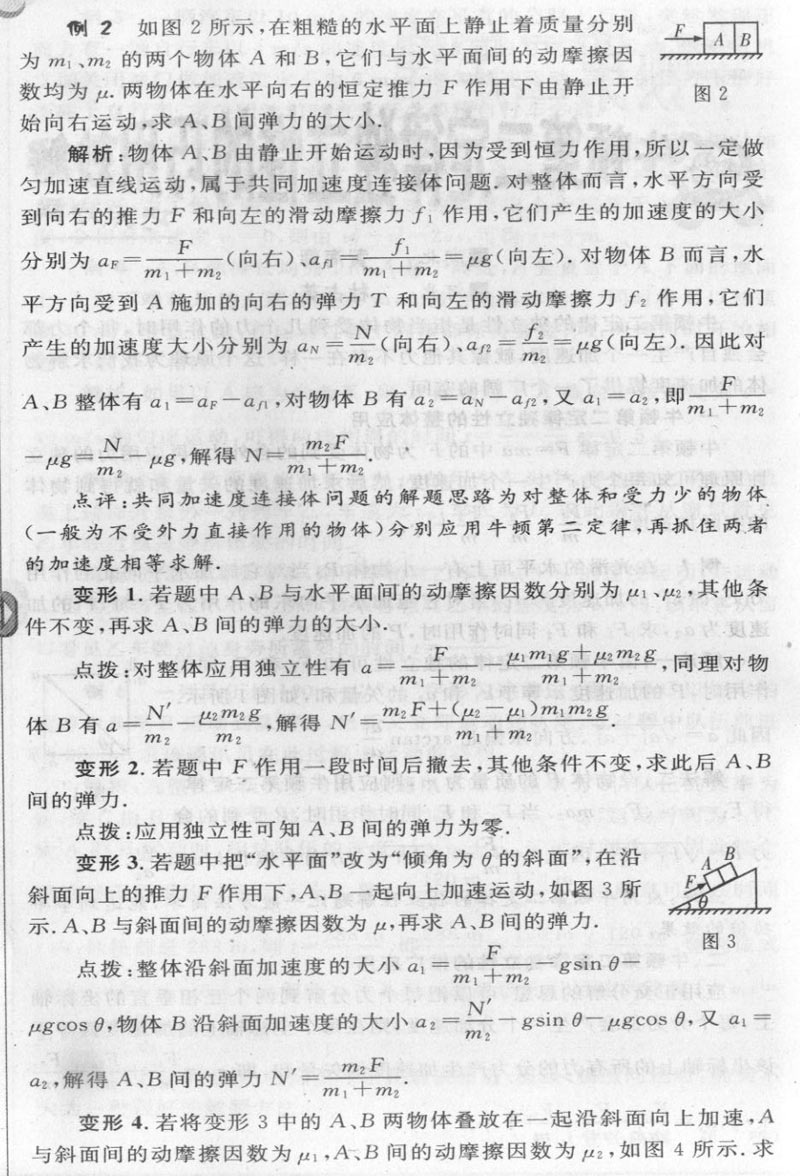 例 2 如图 2 所示,在粗糙的水平面上静止着质量分别
为 m₁、m₂ 的两个物体 A 和 B,它们与水平面间的动摩擦因
数均为 μ. 两物体在水平向右的恒定推力 F 作用下由静止开
始向右运动,求 A、B 间弹力的大小.
F A B
图 2
解析:物体 A、B 由静止开始运动时,因为受到恒力作用,所以一定做
匀加速直线运动,属于共同加速度连接体问题. 对整体而言,水平方向受
到向右的推力 F 和向左的滑动摩擦力 f₁ 作用,它们产生的加速度的大小
分别为 a_F=F/(m₁+m₂)(向右)、a_f1=f₁/(m₁+m₂)=μg(向左). 对物体 B 而言,水
平方向受到 A 施加的向右的弹力 N 和向左的滑动摩擦力 f₂ 作用,它们
产生的加速度大小分别为 a_N=N/m₂(向右)、a_f2=f₂/m₂=μg(向左). 因此对
A、B 整体有 a₁=a_F-a_f1,对物体 B 有 a₂=a_N-a_f2,又 a₁=a₂,即F/(m₁+m₂)
-μg=N/m₂-μg,解得 N=m₂F/(m₁+m₂).
点评:共同加速度连接体问题的解题思路为对整体和受力少的物体
(一般为不受外力直接作用的物体)分别应用牛顿第二定律,再抓住两者
的加速度相等求解.
变形 1. 若题中 A、B 与水平面间的动摩擦因数分别为 μ₁、μ₂,其他条
件不变,再求 A、B 间的弹力的大小.
点拨:对整体应用独立性有 a=F/(m₁+m₂)-(μ₁m₁g+μ₂m₂g)/(m₁+m₂),同理对物
体 B 有 a=N′/m₂-μ₂m₂g/m₂,解得 N′=(m₂F+(μ₂-μ₁)m₁m₂g)/(m₁+m₂).
变形 2. 若题中 F 作用一段时间后撤去,其他条件不变,求此后 A、B
间的弹力.
点拨:应用独立性可知 A、B 间的弹力为零.
变形 3. 若题中把“水平面”改为“倾角为 θ 的斜面”,在沿
斜面向上的推力 F 作用下,A、B 一起向上加速运动,如图 3 所
示. A、B 与斜面间的动摩擦因数为 μ,再求 A、B 间的弹力.
A B F θ
图 3
点拨:整体沿斜面加速度的大小 a₁=F/(m₁+m₂)-gsin θ-
μgcos θ,物体 B 沿斜面加速度的大小 a₂=N′/m₂-gsin θ-μgcos θ,又 a₁=
a₂,解得 A、B 间的弹力 N′=m₂F/(m₁+m₂).
变形 4. 若将变形 3 中的 A、B 两物体叠放在一起沿斜面向上加速,A
与斜面间的动摩擦因数为 μ₁,A、B 间的动摩擦因数为 μ₂,如图 4 所示. 求